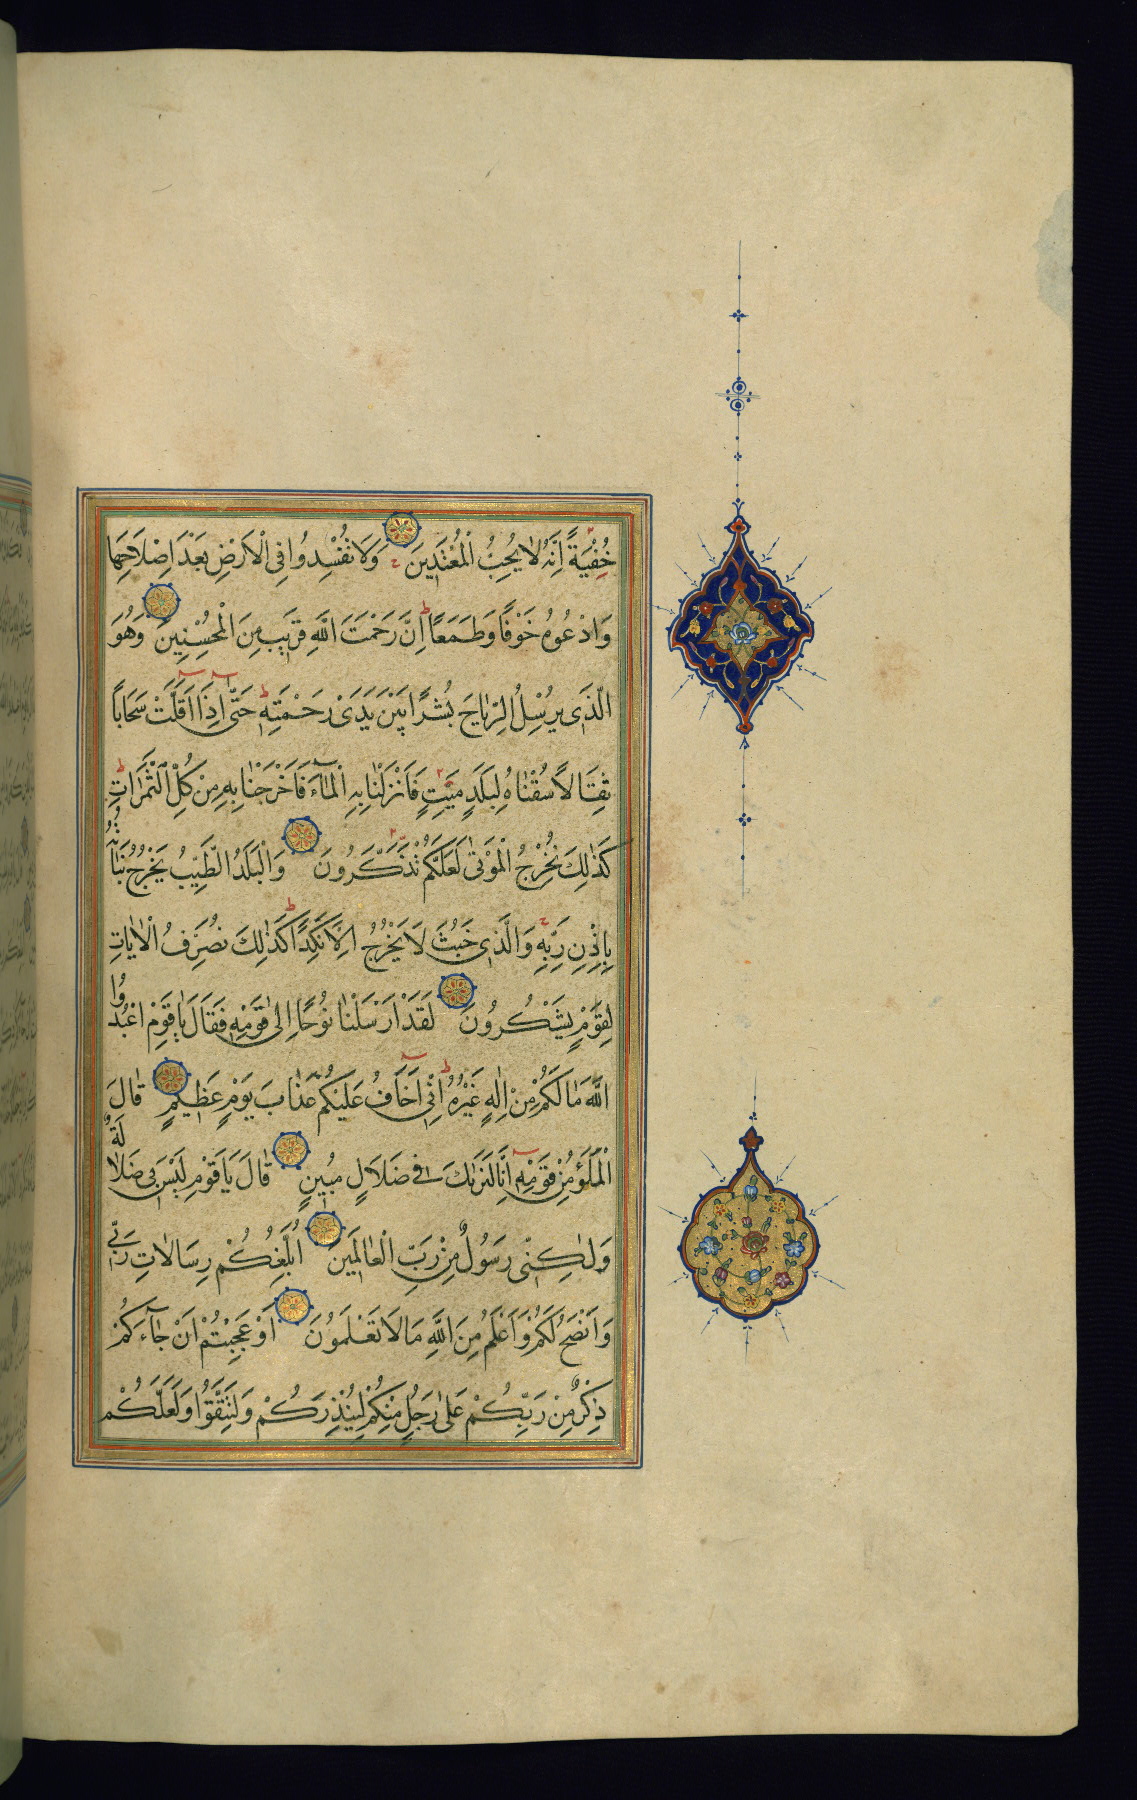 خُفْيَةً اِنَّهُ لَا يُحِبُّ الْمُعْتَدِينَ وَلَا تُفْسِدُوا فِى الْاَرْضِ بَعْدَ اِصْلَاحِهَا
وَادْعُوهُ خَوْفًا وَطَمَعًا اِنَّ رَحْمَتَ اللّٰهِ قَرِيبٌ مِنَ الْمُحْسِنِينَ وَهُوَ
الَّذِى يُرْسِلُ الرِّيَاحَ بُشْرًا بَيْنَ يَدَىْ رَحْمَتِهِ حَتّٰى اِذَا اَقَلَّتْ سَحَابًا
ثِقَالًا سُقْنَاهُ لِبَلَدٍ مَيِّتٍ فَاَنْزَلْنَا بِهِ الْمَآءَ فَاَخْرَجْنَا بِهِ مِنْ كُلِّ الثَّمَرَاتِ
كَذٰلِكَ نُخْرِجُ الْمَوْتٰى لَعَلَّكُمْ تَذَكَّرُونَ وَالْبَلَدُ الطَّيِّبُ يَخْرُجُ نَبَاتُهُ
بِاِذْنِ رَبِّهِ وَالَّذِى خَبُثَ لَا يَخْرُجُ اِلَّا نَكِدًا كَذٰلِكَ نُصَرِّفُ الْاٰيَاتِ
لِقَوْمٍ يَشْكُرُونَ لَقَدْ اَرْسَلْنَا نُوحًا اِلٰى قَوْمِهِ فَقَالَ يَا قَوْمِ اعْبُدُوا
اللّٰهَ مَا لَكُمْ مِنْ اِلٰهٍ غَيْرُهُ اِنِّى اَخَافُ عَلَيْكُمْ عَذَابَ يَوْمٍ عَظِيمٍ قَالَ
الْمَلَؤُ مِنْ قَوْمِهِ اِنَّا لَنَرٰيكَ فِى ضَلَالٍ مُبِينٍ قَالَ يَا قَوْمِ لَيْسَ بِى ضَلَالَةٌ
وَلٰكِنِّى رَسُولٌ مِنْ رَبِّ الْعَالَمِينَ اُبَلِّغُكُمْ رِسَالَاتِ رَبِّى
وَاَنْصَحُ لَكُمْ وَاَعْلَمُ مِنَ اللّٰهِ مَا لَا تَعْلَمُونَ اَوَعَجِبْتُمْ اَنْ جَآءَكُمْ
ذِكْرٌ مِنْ رَبِّكُمْ عَلٰى رَجُلٍ مِنْكُمْ لِيُنْذِرَكُمْ وَلِتَتَّقُوا وَلَعَلَّكُمْ